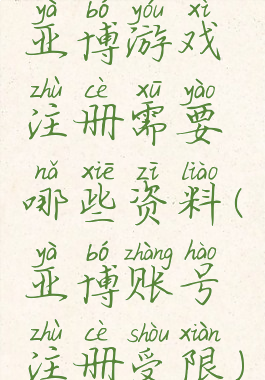 yà bó yóu xì
亚博游戏
zhù cè xū yào
注册需要
nǎ xiē zī liào
哪些资料(
yà bó zhàng hào
亚博账号
zhù cè shòu xiàn
注册受限)